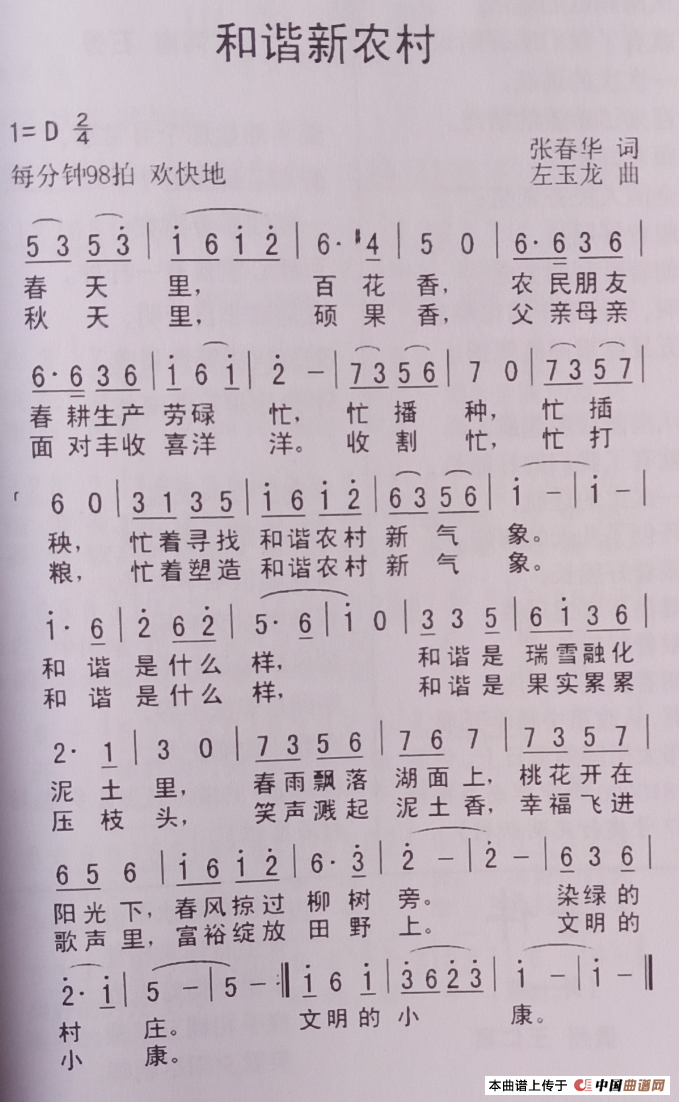 和谐新农村
1= D 2/4
张春华 词
每分钟98拍 欢快地
左玉龙 曲
5 3 5 3̇ | i̇ 6 i̇ 2̇ | 6· #4 | 5 0 | 6· 6 3 6 |
春 天 里, 百 花 香, 农 民朋友
秋 天 里, 硕 果 香, 父 亲母亲
6· 6 3 6 | i̇ 6 i̇ | 2̇ – | 7 3 5 6 | 7 0 | 7 3 5 7 |
春 耕生产 劳碌 忙, 忙 播 种, 忙 插
面 对丰收 喜洋 洋。 收 割 忙, 忙 打
6 0 | 3 1 3 5 | i̇ 6 i̇ 2̇ | 6 3 5 6 | i̇ – | i̇ – |
秧, 忙着寻找 和谐农村 新 气 象。
粮, 忙着塑造 和谐农村 新 气 象。
i̇· 6 | 2̇ 6 2̇ | 5· 6 | i̇ 0 | 3 3 5 | 6 i̇ 3 6 |
和 谐 是什么 样, 和谐是 瑞雪融化
和 谐 是什么 样, 和谐是 果实累累
2· 1 | 3 0 | 7 3 5 6 | 7 6 7 | 7 3 5 7 |
泥 土 里, 春雨飘落 湖面上, 桃花开在
压 枝 头, 笑声溅起 泥土香, 幸福飞进
6 5 6 | i̇ 6 i̇ 2̇ | 6· 3̇ | 2̇ – | 2̇ – | 6 3 6 |
阳光下, 春风掠过 柳 树 旁。 染绿的
歌声里, 富裕绽放 田 野 上。 文明的
2̇· i̇ | 5 – | 5 – :‖ i̇ 6 i̇ | 3̇ 6 2̇ 3̇ | i̇ – | i̇ – ‖
村 庄。 文明的 小 康。
小 康。
本曲谱上传于 中国曲谱网